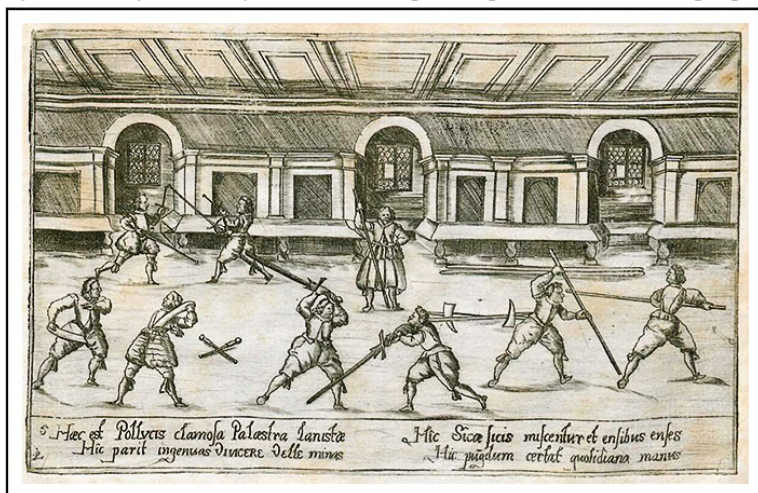 5 Hæc est Pollucis clamosa Palæstra lanistæ
Hic parit ingenuas VINCERE Velle minas
Hic Sicæ sicis miscentur et ensibus enses
Hic pugilum certat quotidiana manus